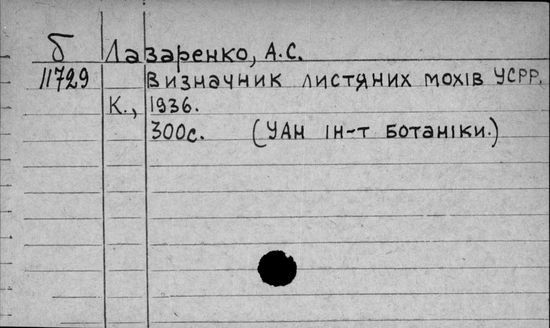 б Лазаренко, А.С.
11729 Визначник листяних мохів УСРР.
К., 1936.
300с. (УАН ін-т ботаніки.)